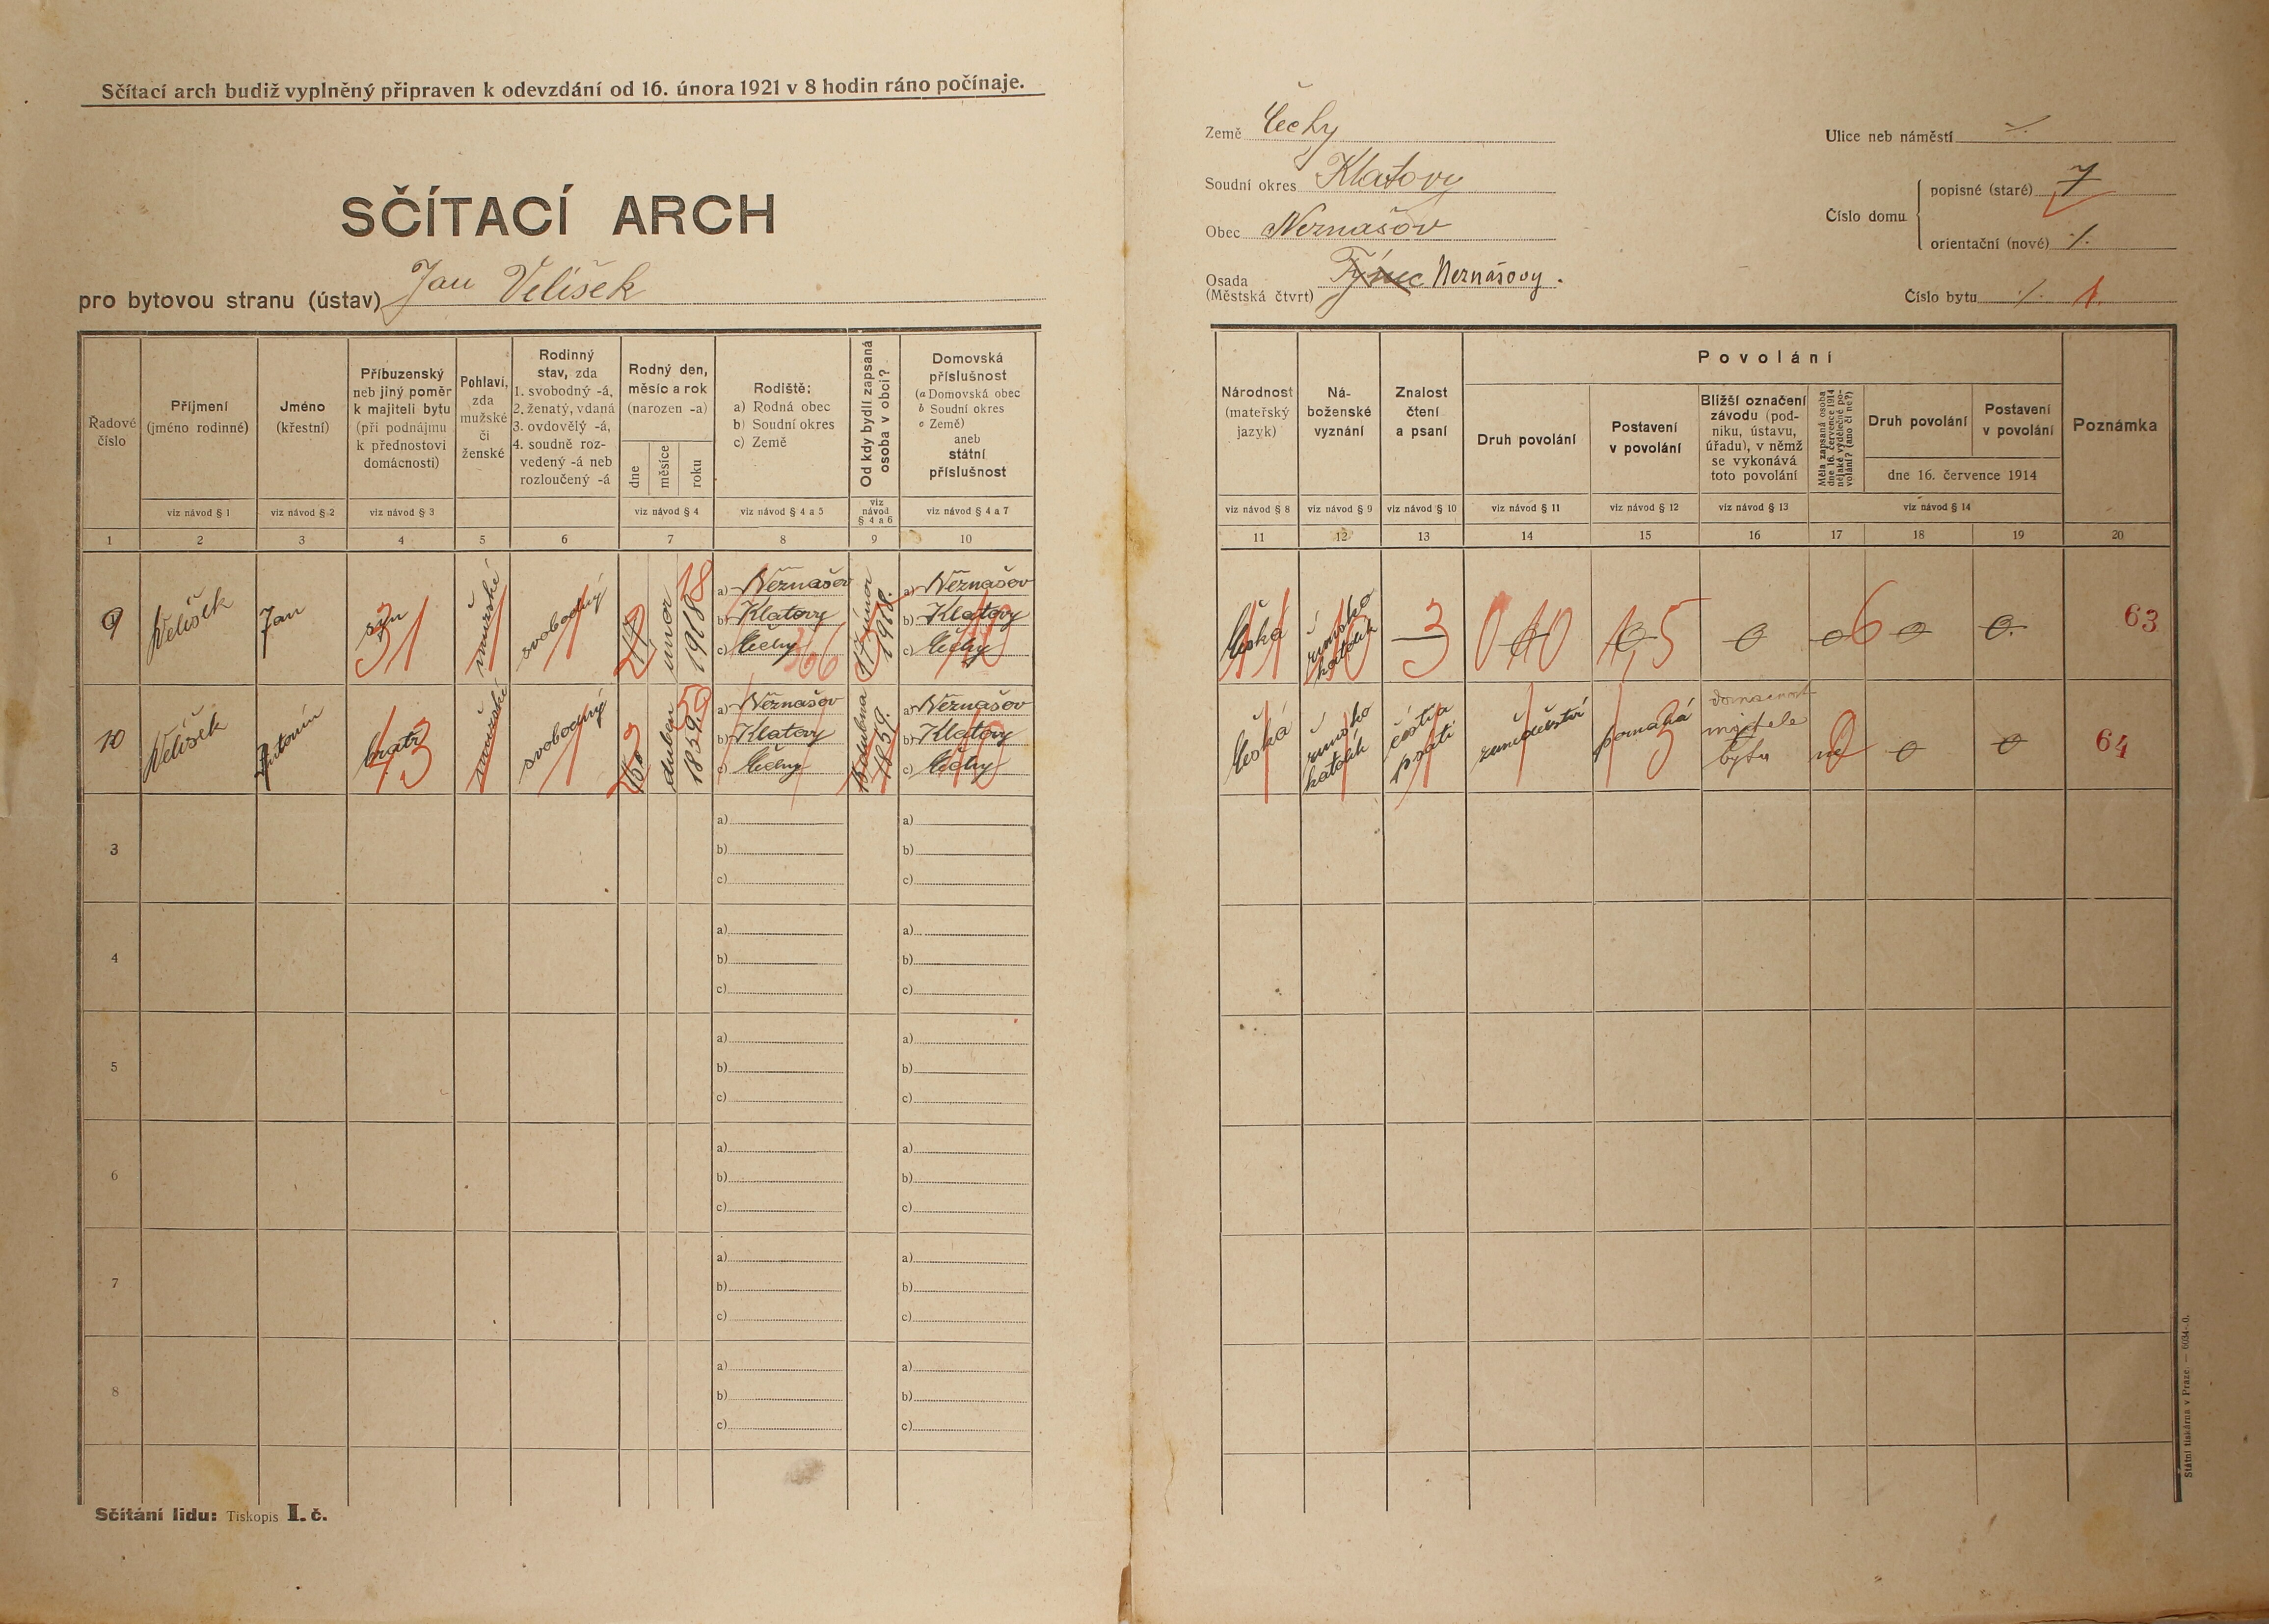 Sčítací arch budiž vyplněný připraven k odevzdání od 16. února 1921 v 8 hodin ráno počínaje.
SČÍTACÍ ARCH
pro bytovou stranu (ústav) Jan Velíšek
Země Čechy
Soudní okres Klatovy
Obec Neznašov
Osada (Městská čtvrt) Týnec Neznašovy.
Ulice neb náměstí ./.
Číslo domu
popisné (staré) 7
orientační (nové) ./.
Číslo bytu ./. 1.
Řadové číslo
Příjmení (jméno rodinné)
Jméno (křestní)
Příbuzenský neb jiný poměr k majiteli bytu (při podnájmu k přednostovi domácnosti)
Pohlaví, zda mužské či ženské
Rodinný stav, zda 1. svobodný -á, 2. ženatý, vdaná 3. ovdovělý -á, 4. soudně rozvedený -á neb rozloučený -á
Rodný den, měsíc a rok (narozen -a)
dne
měsíce
roku
Rodiště:
a) Rodná obec
b) Soudní okres
c) Země
Od kdy bydlí zapsaná osoba v obci?
Domovská příslušnost
(a Domovská obec
b Soudní okres
c Země)
aneb státní příslušnost
viz návod § 1
viz návod § 2
viz návod § 3
viz návod § 4
viz návod § 4 a 5
viz návod § 4 a 6
viz návod § 4 a 7
1 2 3 4 5 6 7 8 9 10
Národnost (mateřský jazyk)
Náboženské vyznání
Znalost čtení a psaní
Povolání
Druh povolání
Postavení v povolání
Bližší označení závodu (podniku, ústavu, úřadu), v němž se vykonává toto povolání
Měla zapsaná osoba dne 16. července 1914 nějaké výdělečné povolání? (ano či ne?)
Druh povolání
Postavení v povolání
dne 16. července 1914
Poznámka
viz návod § 8
viz návod § 9
viz návod § 10
viz návod § 11
viz návod § 12
viz návod § 13
viz návod § 14
11 12 13 14 15 16 17 18 19 20
9 Velíšek Jan syn 31 mužské svobodný 17 únor 1918 18
a) Neznašov
b) Klatovy
c) Čechy
17 února 1918.
a) Neznašov
b) Klatovy
c) Čechy
česká římsko katolík 3 0 0 0 0 6 0 0. 63
10 Velíšek Antonín bratr 43 mužské svobodný duben 1859 59
a) Neznašov
b) Klatovy
c) Čechy
dubna 1859.
a) Neznašov
b) Klatovy
c) Čechy
česká římsko katolík čísti a psáti zemědělství pomáhá 3 domácnost majitele bytu ne 0 0 64
3
a) a)
b) b)
c) c)
4
a) a)
b) b)
c) c)
5
a) a)
b) b)
c) c)
6
a) a)
b) b)
c) c)
7
a) a)
b) b)
c) c)
8
a) a)
b) b)
c) c)
Sčítání lidu: Tiskopis I. č.
Státní tiskárna v Praze. — 6034-0.